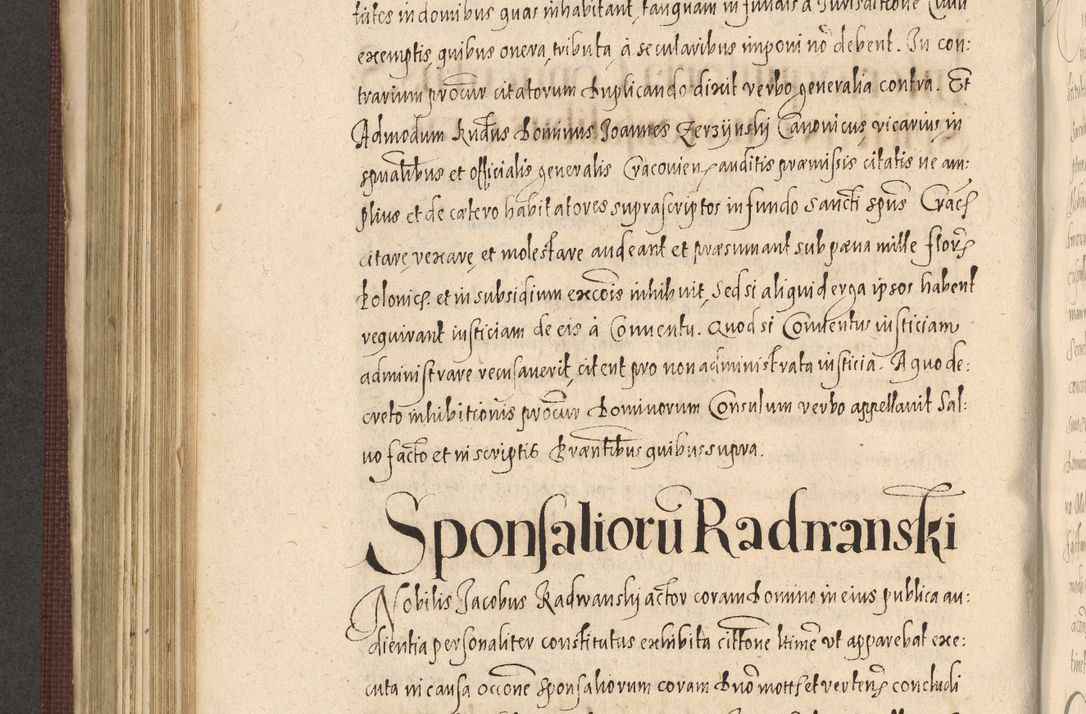 tātes in domibus quas inhabitant, tanquam in fundis a Jurisdictione Civili
exemptis, quibus onera, tributa, à secularibus imponi nō debent. In con:
trarium procūr citatorum duplicando dixit verbo generalia contra. Et
Admodum Rndus Dominus Joannes Zerzijnskij Canonicus, vicarius, in
spūalibus et officialis generalis Cracovien, auditis præmissis citatis ne am:
plius et de cætero habitatores suprascriptos in fundo Sancti Spūs Crac
citare, vexare, et molestare audeant et præsumant sub pæna mille flor
Polonic. et in subsidium excōis inhibuit, Sed si aliquid erga ipsos habent
requirant iusticiam de eis à Conventu. Quod si Conventus iusticiam
administrare recusaverit, citent pro non administrata iusticia. A quo de:
creto inhibitionis procūr Dominorum Consulum verbo appellavit Sal:
vo facto et in scriptis Præntibus quibus supra.
Sponsaliorū Radwanski
Nobilis Jacobus Radwanskij actor coram Domino in eius publica au:
dientia personaliter constitutus exhibita cittōne ltime ut apparebat exe:
cuta in causa occōne sponsaliorum coram Dnō mott et verten concludi